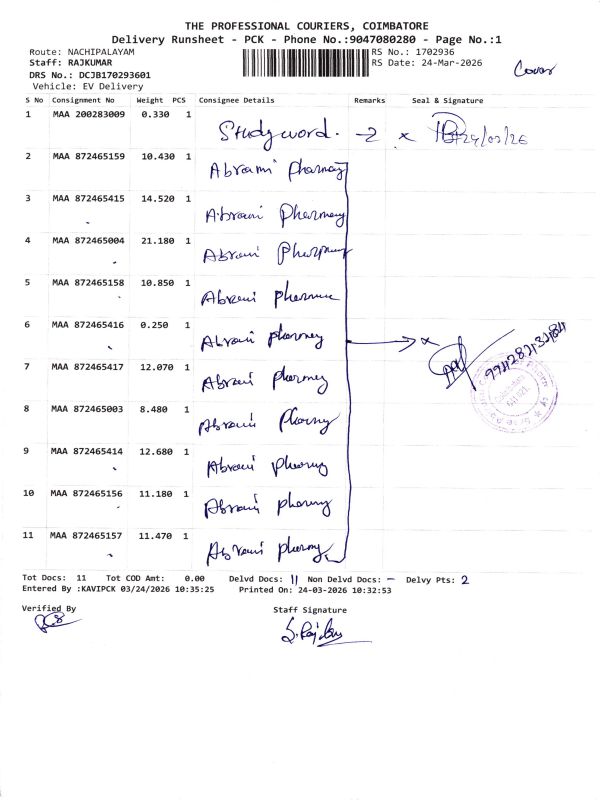 THE PROFESSIONAL COURIERS, COIMBATORE
Delivery Runsheet - PCK - Phone No.:9047080280 - Page No.:1
Route: NACHIPALAYAM RS No.: 1702936
Staff: RAJKUMAR RS Date: 24-Mar-2026
Cover
DRS No.: DCJB170293601
Vehicle: EV Delivery
S No Consignment No Weight PCS Consignee Details Remarks Seal & Signature
1 MAA 200283009 0.330 1 Studyword. -2 x 24/03/26
2 MAA 872465159 10.430 1 Abrami Pharmacy
3 MAA 872465415 14.520 1 Abrami Pharmacy
4 MAA 872465004 21.180 1 Abrami
5 MAA 872465158 10.850 1 Abrami
6 MAA 872465416 0.250 1 Abrami x
7 MAA 872465417 12.070 1 Abrami
8 MAA 872465003 8.480 1 Abrami
9 MAA 872465414 12.680 1 Abrami
10 MAA 872465156 11.180 1 Abrami
11 MAA 872465157 11.470 1 Abrami
Tot Docs: 11 Tot COD Amt: 0.00 Delvd Docs: 11 Non Delvd Docs: - Delvy Pts: 2
Entered By :KAVIPCK 03/24/2026 10:35:25 Printed On: 24-03-2026 10:32:53
Verified By Staff Signature
S. Rajkumar